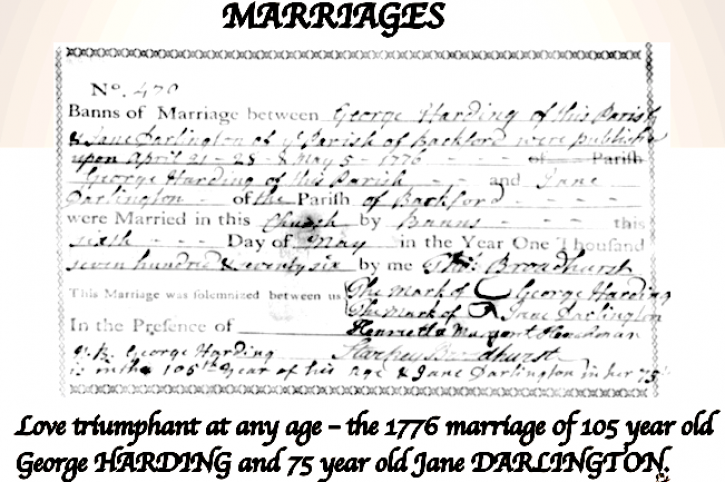 MARRIAGES
No. 470
Banns of Marriage between George Harding of this Parish
& Jane Darlington of ye Parish of Backford were publish'd
upon April 21 - 28 - & May 5 - 1776 - - - of Parish
George Harding of this Parish - - and Jane
Darlington - of the Parish of Backford - - - - -
were Married in this Church by Banns - - - - this
sixth - - - Day of May - in the Year One Thousand
seven hundred & seventy six by me Thos. Broadhurst
This Marriage was solemnized between us The Mark of George Harding
The Mark of Jane Darlington
In the Presence of Henrietta
George Harding Broadhurst
is in the 105th Year of his Age & Jane Darlington in her 75
Love triumphant at any age – the 1776 marriage of 105 year old
George HARDING and 75 year old Jane DARLINGTON.